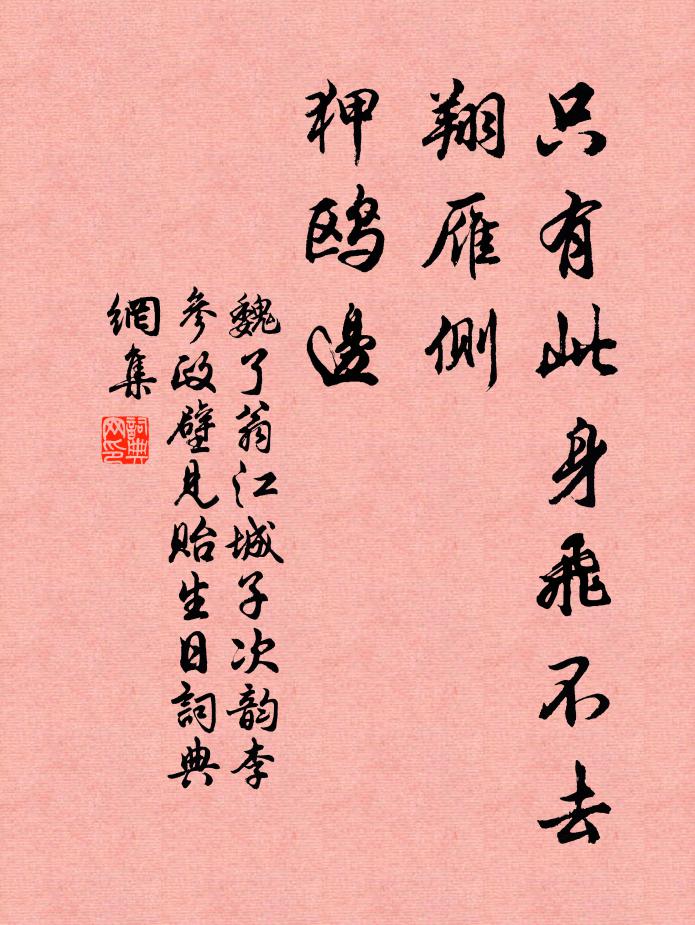 只有此身飛不去
翔雁側
狎鷗邊
魏了翁江城子次韵李
參政壁見貽生日詞典
網集
詞典
网印